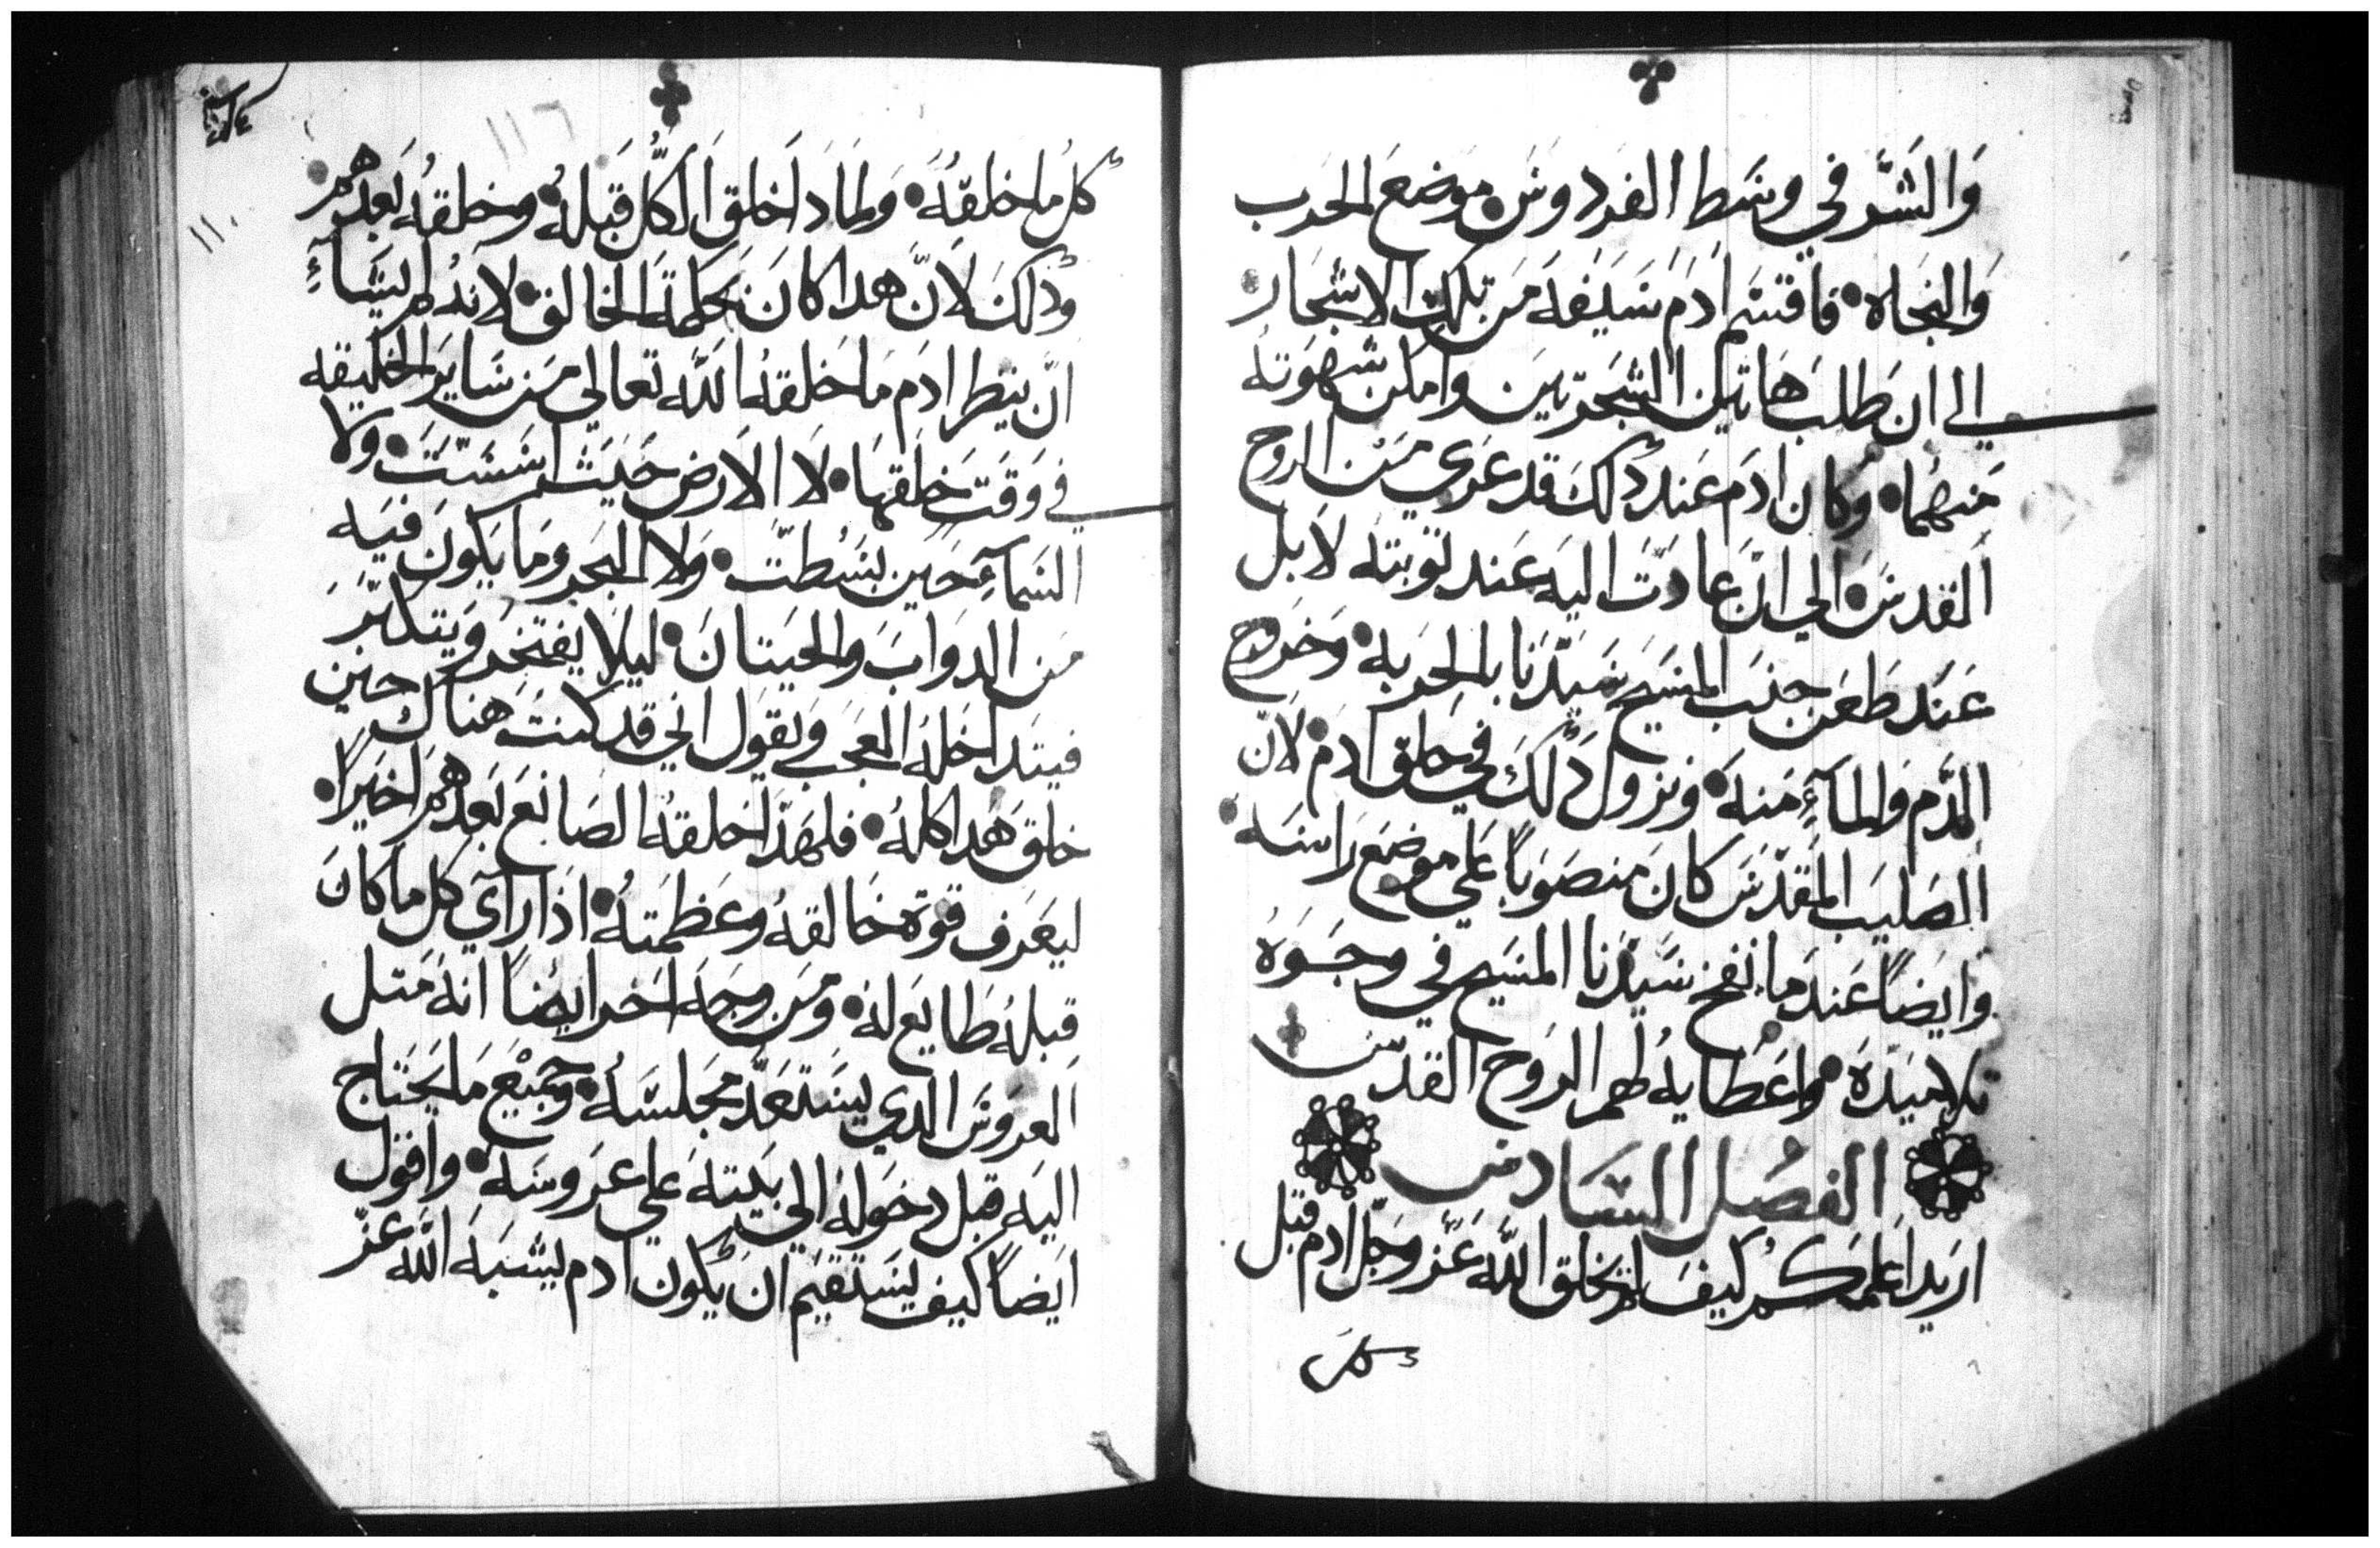 وَالشَّر في وسَط الفردوسَ موضع الحرب
وَالنجاه فاقتسَم ادَم سَيفه مَن تلك الاشجار
الي ان طَلبَ هَاتين الشجرتين وامكن شهوَته
مَنهما وَكان ادَم عَند ذلكَ قد عَري مَن الروح
القدسَ الي ان عادَت اليه عَند توبته لَا بل
عَند طَعَن جنبَ المسَيح سَيّدنا بالحربه وَخروج
الدَّم وَالمآءِ مَنه وَنزول ذلكَ في حلق ادم لانّ
الصَليبَ المقدّسَ كانَ منصَوباً عَلي موضع رَاسَه
وَايضاً عَندما نفخ سَيّدنا المسَيح في وجَوه
تلاميَذه وَاعَطايه لهم الرَوح القدس
الفصل السَادس
اريَد اعَلمكم كيفَ لم يخلق اللَّه عَزّ وجَلّ ادم قبل
كل
كل ما خلقهُ وَلماذَا خَلق الكلّ قَبلهُ وخلقهُ بَعدهم
وذلكَ لانّ هَدا كانَ بحكمةَ الخالق لانهُ لم يشَآءِ
انّ ينظر ادَم مَا خَلقهُ اللَّه تعالي مَن سَاير الخليقه
في وَقَت خلقهَا لَا الارض حَيَث اسَسَّتَ ولا
السَمآءِ حَين بسُطتّ وَلا البَحر ومَا يَكونَ فيَه
مَن الدوَابَ وَالحَيتانَ ليلا يفتخر وَيَتكبّر
فيتداخَلهُ العجَب وَيقَول اني قد كنتَ هناك حين
خلق هَدا كلهُ فلهَذا خلقهُ الصَانع بَعدهم اخَيَراً
ليعَرف قوةَ خَالقهُ وعَظمَتهُ اذا رَآي كل ما كانَ
قبلهُ طَايَع لهُ ومَن وجَه اخر ايضاً انهَ مَتل
العَروسَ الدي يسَتعَدّ مجَلسَهُ وجَميَعَ مَا يَحَتاج
اليَه قبل دخَولهُ الي بَيَته عَلي عَروسَه وَاقَول
ايَضاً كيف يسَتقيَم ان يكون ادم يشَبَه اللَّه عَزّ
١١٦
١١٠